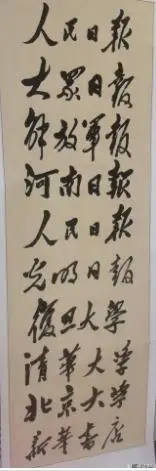 人民日报
大眾日報
解放軍报
河南日报
人民日报
光明日報
復旦大学
清華大学
北京大学
新華書店